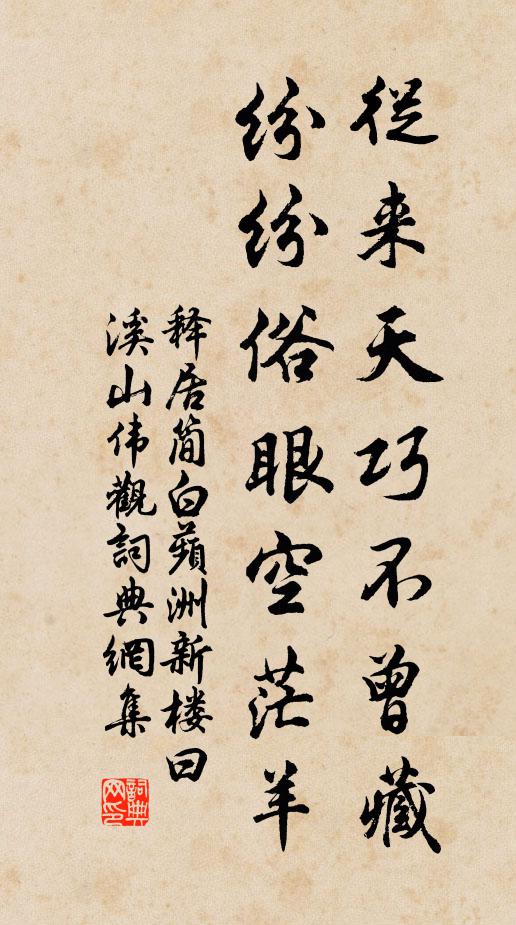 從来天巧不曾藏
紛紛俗眼空茫羊
释居简白蘋洲新楼曰
溪山伟觀詞典網集
詞典网印